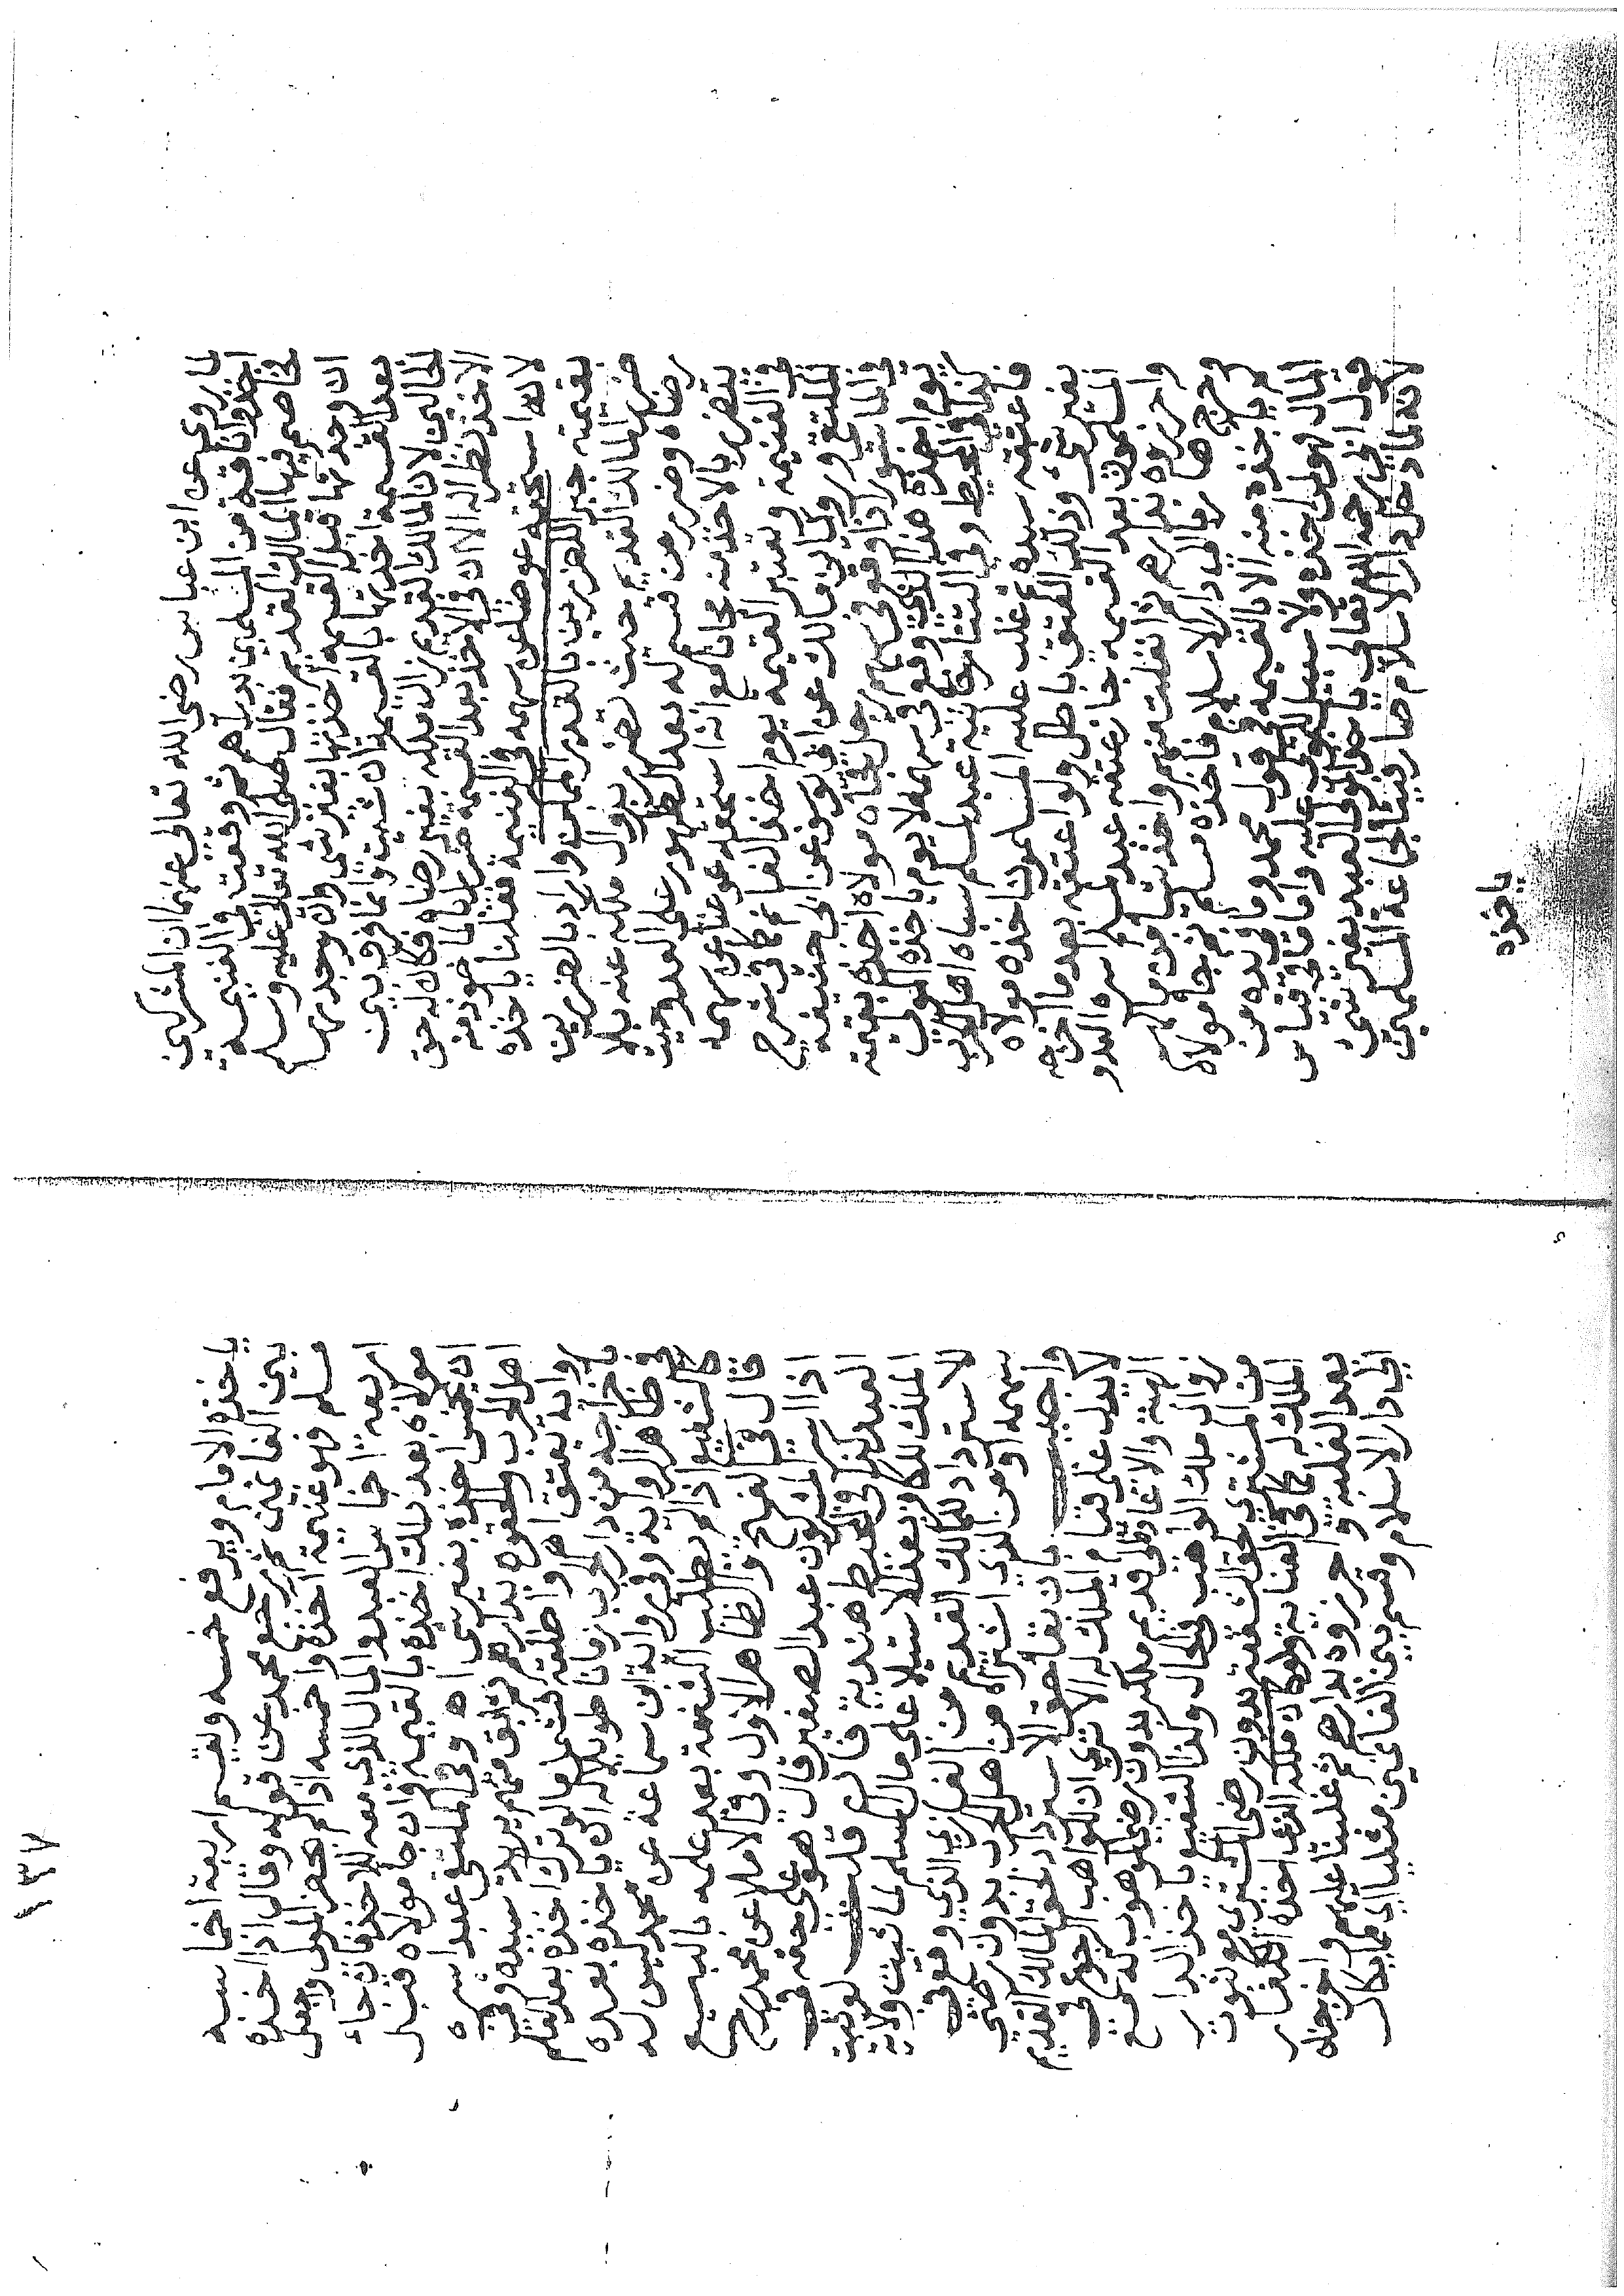 لما روي عن ابن عباس رضي الله تعالى عنهما ان المشركين
اخذوا ناقة من المسلمين بدارهم ثم وقعت في الغنيمة
فخاصم فيها المالك القديم فقال صلى الله تعالى عليه وسلم
ان وجدتها قبل القسمة اخذتها بغير شي وان وجدتها
بعد القسمة اخذتها بالقيمة ان شيت وانما فرق بين
الحالين لان المالك القديم زال ملكه بغير رضاه فكان له حق
الاخذ نظرا له الا ان في الاخذ بعد القسمة ضررا بالماخوذ منه
لانه استحقه عوضا عن سهمه في الغنيمة فقلنا ياخذه
بقيمته جبرا للضررين بالقدر الممكن واراد بالضررين
ضرر المالك القديم حيث تضرر بزوال ملكه عنه بلا
رضاه وضرر من قسم له بعد الظهور على العدو حيث
يتضرر بالاخذ منه مجانا مع انه استحقه عوضا عن سهمه
في الغنيمة وتعتبر القيمة يوم اخذ الغانم كما في شرح
الملتقى وروى ابن مالك عن ابي يوسف عن ابي حنيفة
في الماسور اذا وقع في سهم رجل فجاه مولاه اخذه بقيمته
يوم اخذه هذا الذي وقع في سهمه لا يوم ياخذه المولى
كذا في المحيط وفي التتارخانية عبد لمسلم سباه اهل الحرب
فاعتقه سيده ثم غلب عليه المسلمون اخذه مولاه
بغير شي وذلك العتق باطل ولو اعتقه بعد ما اخرجه
المسلمون بعد القسمة جاز عتقه عبد لمسلم اسره العدو
واحرزوه بدارهم ثم انفلت منهم واخذ شيا من مالهم
وخرج هاربا الى دار الاسلام فاخذه مسلم ثم جا مولاه
لم ياخذه منه الا بالقيمة في قول محمد وما في يده من
المال فهو لمن اخذه ولا سبيل للمولى عليه واما في قياس
قول ابي حنيفة رحمه الله تعالى ياخذ المولى العبد بغير شي
لانه لما دخل دار الاسلام صار فيئا لجماعة المسلمين
ياخذه
١٣٧
ياخذه الامام ويرفع خمسه ويقسم اربعة اخماسه
بين الغانمين ثم رجع محمد عن قوله وقال اذا اخذه
مسلم فهو غنيمة اخذه واخمسه اذا لم يحضر المولى واجعل
اربعة اخماس العبد والمال الذي معه للاخذ فان جاء
مولاه بعد ذلك اخذه بالقيمة وان جا مولاه قبل
ان يخمس اخذه بغير شي اه وفي الملتقى عبد اسره
اهل الحرب والحقوه بدارهم ثم ابق منهم يريد سيده وفي
رواية يعتق اه واطلقه فشمل ما لو ترك اخذه بعد العلم
باخراجه من دار الحرب زمانا طويلا له ان ياخذه بعده
في ظاهر الرواية وفي رواية ابن سماعة عن محمد ليس له
كالشفيع اذا لم يطلب الشفعة بعد علمه بالبيع
قال في الفتح والظاهر الاول وفي الاملا عن محمد رح
اذا اسر المشركون عبد الصغير قال هو على حقه في
العبد كذا في المحيط هندية فان قلت لو ثبت
الملك للكافر بعد الاستيلا على مال المسلم لما ثبت ولاية
الاسترداد للمالك القديم من الغازي الذي وقع في
سهمه او من الذي اشتراه من اهل الحرب بدون رضى
واجيب بان بقاء حق الاسترداد لحق المالك القديم
لا يدل على قيام الملك له الا ترى ان للواهب الرجوع في
الهبة والاعادة الى قديم ملكه بدون رضى الموهوب له مع
زوال ملك الواهب في الحال وكذا الشفيع ياخذ الدار
من المشتري بحق الشفعة بدون رضى المشتري مع ثبوت
الملك له كما في العناية ولو كان ملكه الذي اخذه الكفار
بعد الغلبة واحرزوه بدارهم ثم غلبنا عليهم واخرجناه
الى دار الاسلام وقسم بين الغانمين مثليا اي مما يكال